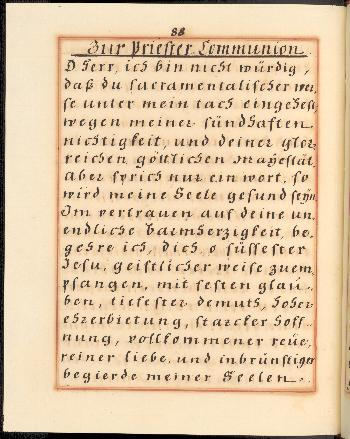 88
Zur Priester Communion.
O Herr, ich bin nicht würdig,
daß du sacramentalischer wei„
se unter mein tach eingehest,
wegen meiner sündhaften
nichtigkeit, und deiner glor„
reichen göttlichen mayestät,
aber sprich nur ein wort, so
wird meine Seele gesund seÿn.
Im vertrauen auf deine un„
endliche barmherzigkeit, be„
gehre ich, dich, o süssester
Jesu, geistlicher weise zu em„
pfangen, mit festen glau„
ben, tiefester demuth, hoher
ehrerbietung, starcker hoff„
nung, vollkommener reüe,
reiner liebe, und inbrünstiger
begierde meiner Seelen.